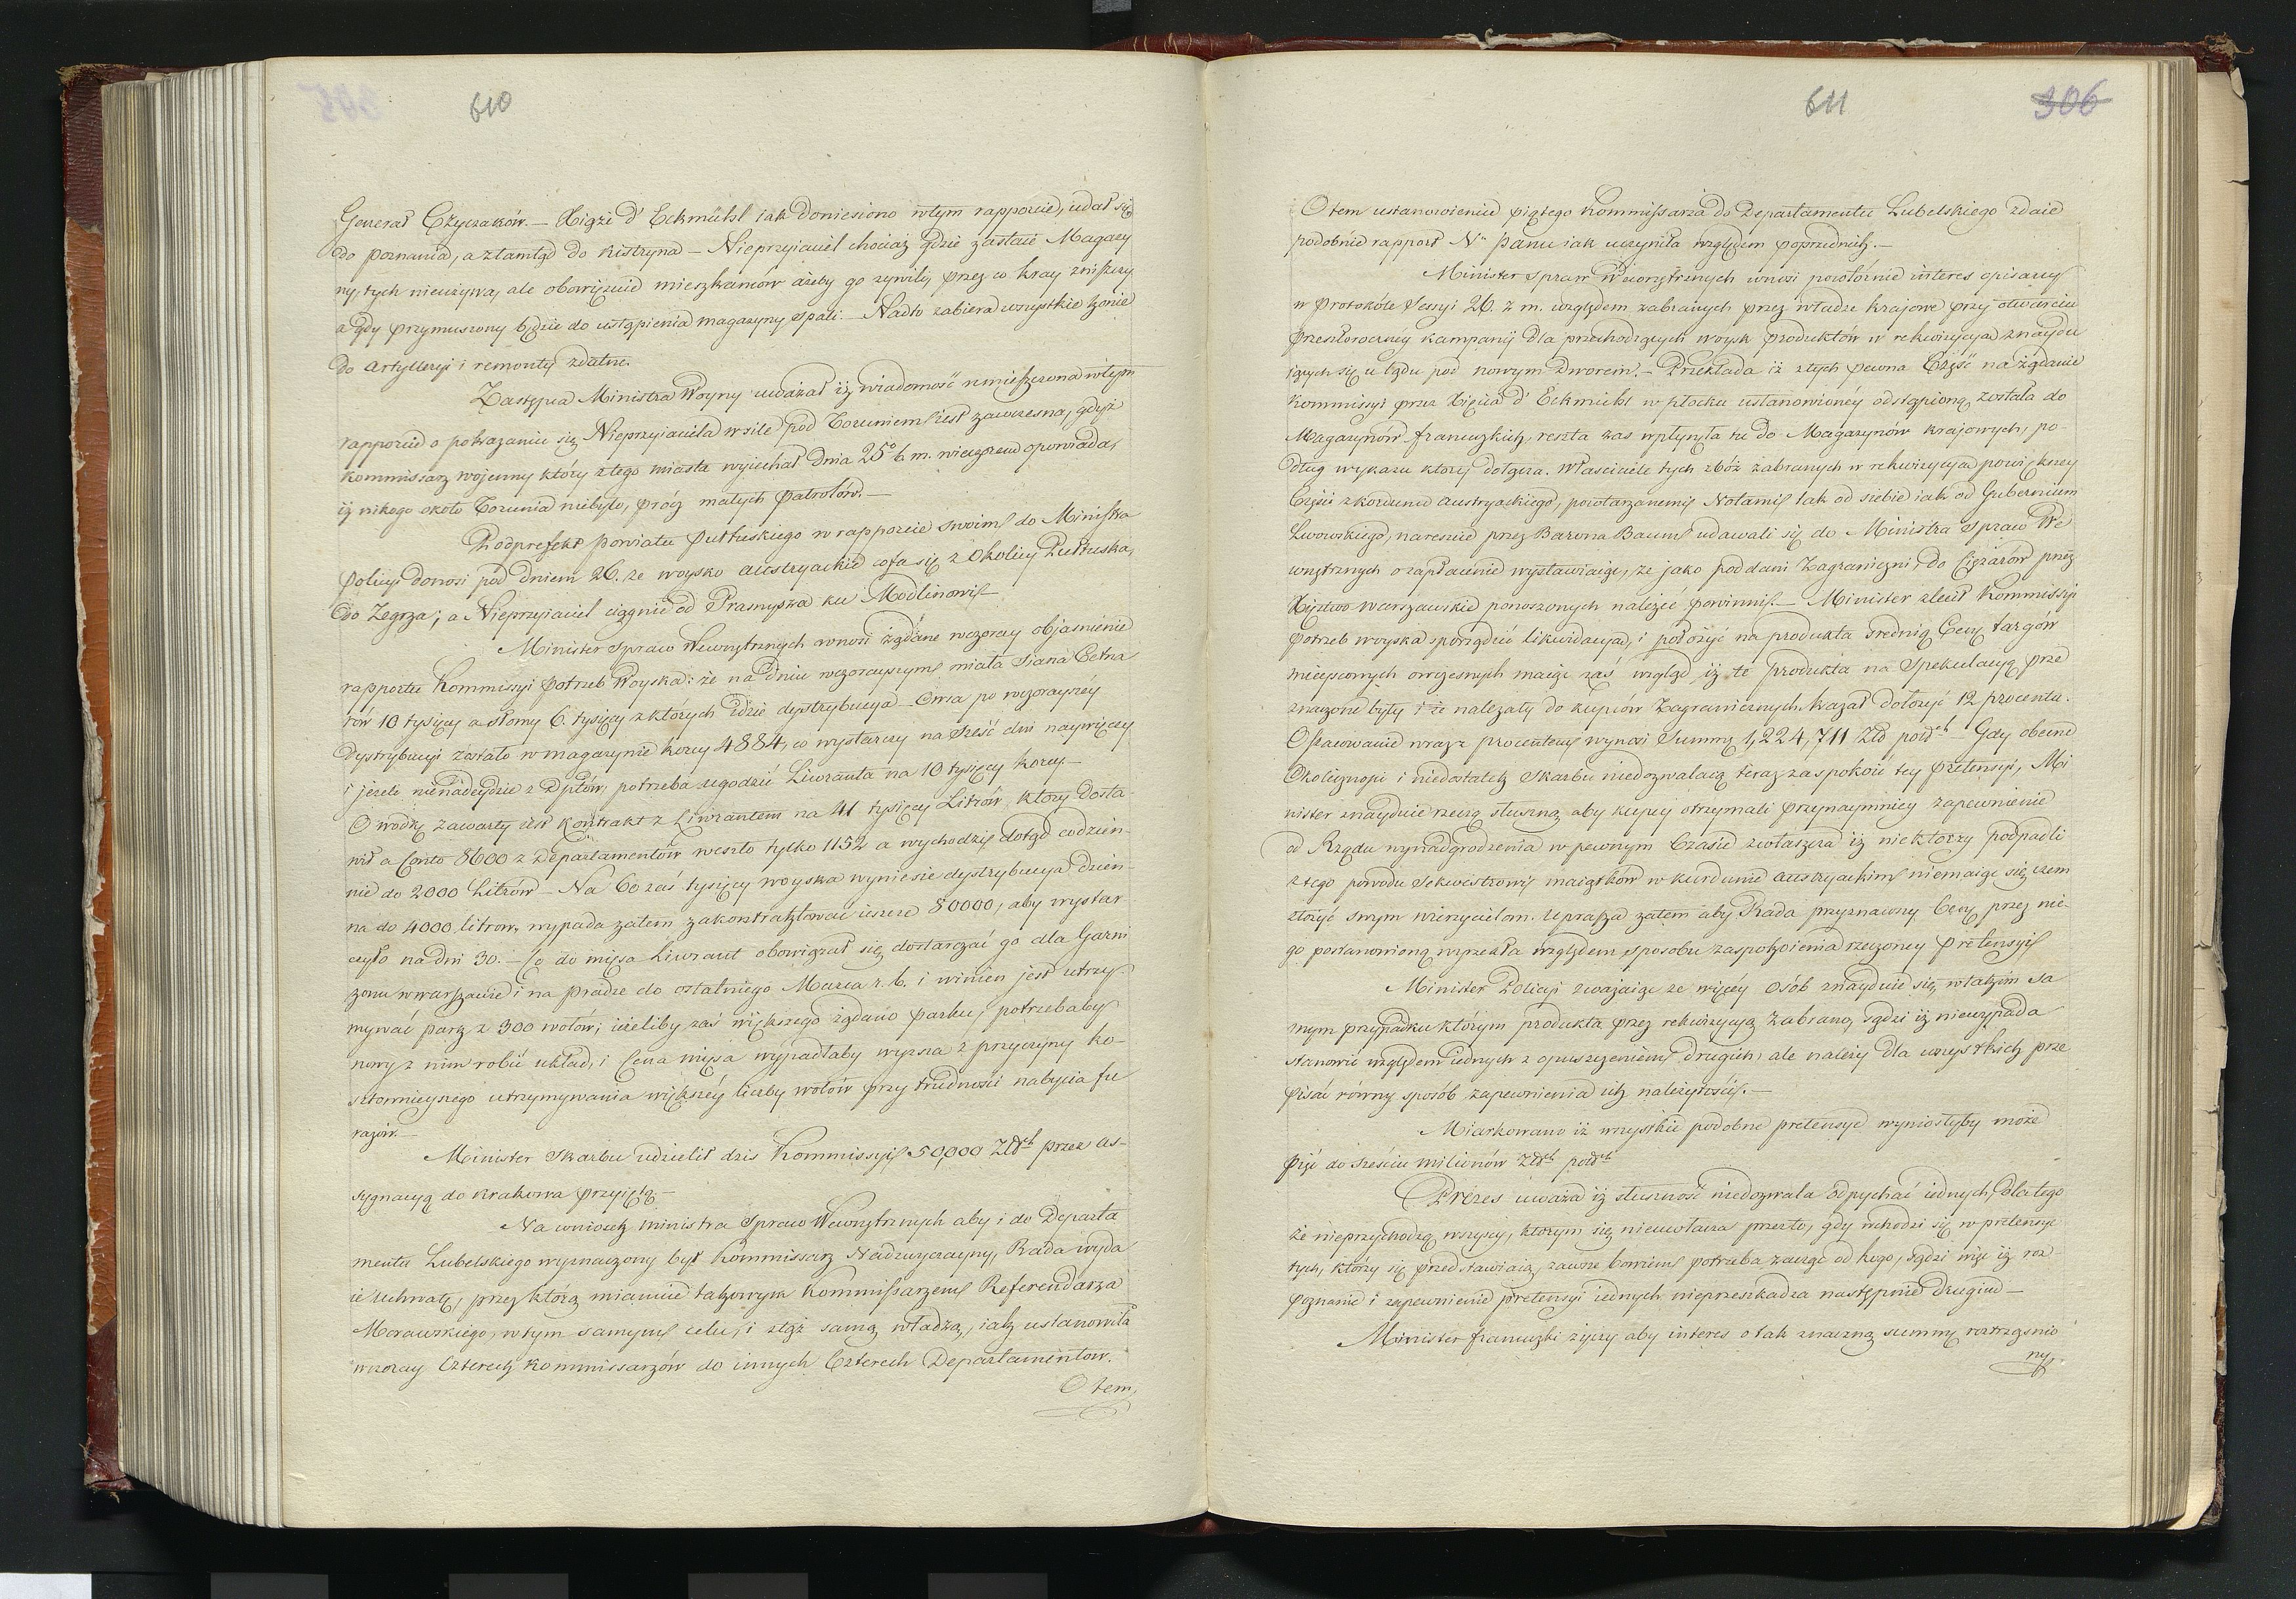 610
Generał Czyczaków. — Xiąże d' Eckmühl iak doniesiono w tym rapporcie, udał się
do Poznania, a ztamtąd do Kistryna — Nieprzyiaciel chociaż gdzie zastaie Magazy
ny, tych nieużywa, ale obowięzuie mieszkańców ażeby go żywili, przez co kray zniszczy
a gdy przymuszony będzie do ustąpienia magazyny spali. — Nadto zabiera wszystkie konie
do Artylleryi i remonty zdatne.
Zastępca Ministra Woyny uważał iż wiadomość umieszczona w tym
rapporcie o pokazaniu się Nieprzyiaciela w sile pod Toruniem iest zawczesna, gdyż
Kommissarz woienny który z tego miasta wyiechał dnia 25go b. m. wieczorem opowiada,
iż nikogo około Torunia niebyło, próćz małych patrolów. —
Podprefekt powiatu Pułtuskiego w rapporcie swoim do Ministra
Policyi donosi pod dniem 26. że woysko austryackie cofa się z Okolicy Pułtuska,
do Zegrza; a Nieprzyiaciel ciągnie od Prasnysza ku Modlinowi —
Minister Spraw Wewnętrznych wnosi żądane wczoray obiaśnienie
rapportu Kommissyi potrzeb Woyska: że na dniu wczorayszym miała Siana Cetna
rów 10 tysięcy a słomy 6. tysięcy z których idzie dystrybucya — Owsa po wczorayszéy
dystrybucyi zostało w magazynie korcy 4884, co wystarczy na sześć dni naywięcey
i ieżeli nienadeydzie z Dptów, potrzeba ugodzić Liwranta na 10 tysięcy korcy —
O wódkę zawarty iest kontrakt z Liwrantem na 41 tysięcy Litrów, który dosta-
wił a Conto 8600 z Departamentów weszło tylko 1152 a wychodzi dotąd codzien-
nie do 2000 Litrów — Na 60 zaś tysięcy woyska wyniesie dystrybucya dzien-
na do 4000 litrow, wypada zatem zakontraktować ieszcze 80000, aby wystar
czyło na dni 30. — Co do mięsa Liwrant obowiązał się dostarczać go dla Garni
zonu w warszawie i na pradze do ostatniego Marca r. b. i winien jest utrzy-
mywać park z 300 wołów; ieżeliby zaś większego żądano parku, potrzebaby
nowy z nim robić układ, i Cena mięsa wypadłaby wyższa z przyczyny ko-
sztownieyszego utrzymywania większéy liczby wołów przy trudności nabycia fu
rażów. —
Minister Skarbu udzielił dziś Kommissyi 50,000 Złłch przez as-
sygnacyą do Krakowa przyiętą. —
Na wniosek ministra Spraw Wewnętrznych aby i do Departa
mentu Lubelskiego wyznaczony był Kommissarz Nadzwyczayny, Rada wyda
ie Uchwałę, przez którą mianuie takowym Kommissarzem Referendarza
Morawskiego, w tym samym celu, i z tąż samą władzą, iak ustanowiła
wczoray Czterech Kommissarzów do innych Czterech Departamentow.
O tem,
611
306
O tem ustanowieniu piątego Kommissarza do Departamentu Lubelskiego zdaie
podobnie rapport Nu Panu iak uczyniła względem poprzednich. —
Minister Spraw Wewnętrznych wnosi powtórnie interes opisany
w Protokóle Sessyi 26. z m. względem zabranych przez władze krajowe przy otwarciu
przeszłoroczney kampanij dla przechodzących woysk produktów w rekwizycya znaydu
iących się u lądu pod nowym Dworem. — Przekłada iż z tych pewna Część na żądanie
Kommissyi przez Xięcia d' Eckmühl w płocku ustanowionéy odstąpioną została do
Magazynów francuzkich, reszta zas wpłynęła tu do Magazynów krajowych, po-
dług wykazu który dołącza. Właściciele tych zbóż zabranych w rekwizycya powiększey
Części z kordonu austryackiego, powtarzanemi Notami tak od siebie iak od Gubernium
Lwowskiego, nareszcie przez Barona Baum udawali się do Ministra Spraw We
wnętrznych o zapłacenie wystawiaiąc, że jako poddani Zagraniczni, do Ciężarów przez
Xięstwo Warszawskie ponoszonych należeć powinni. — Minister zlecił Kommissyi
potrzeb woyska sporządzić likwidacya, i położyć na produkta średnią Cenę targów
mieyscowych owczesnych maiąc zaś wzgląd iż te produkta na Spekulacyą prze
znaczone były i że należały do kupców Zagranicznych kazał dołożyć 12 procentu.
Oszacowanie wraz z procentem wynosi Summę 1,224,711 Złł polsch Gdy obecne
Okoliczności i niedostatek Skarbu niedozwalaią teraz zaspokoić tey pretensyi, Mi
nister znayduie rzeczą słuszną aby kupcy otrzymali przynaymniey zapewnienie
od Rządu wynadgrodzenia w pewnym Czasie zwłaszcza iż niektórzy podpadli
z tego powodu Sekwestrowi maiątków w kordonie austryackim niemaiąc się czem
złożyć swym wierzycielom. Uprasza zatem aby Rada przyznawszy Cenę przez nie-
go postanowioną wyrzekła względem sposobu zaspokoienia rzeczoney pretensyi
Minister Policyi zważaiąc że więcey Osób znayduie się w takim sa
mym przypadku którym produkta przez rekwizycyą zabrano, sądzi iż niewypada
stanowić względem iednych z opuszczeniem drugich, ale należy dla wszystkich prze
pisać równy sposób zapewnienia ich należytości. —
Miarkowano iż wszystkie podobne pretensye wyniosłyby może
pięć do sześciu milionów Złłch polsch
Prezes uważa iż słuszność niedozwala odpychać iednych, dlatego
że nieprzychodzą wszyscy, którym się nieuwłacza przez to, gdy wchodzi się w pretensye
tych, którzy się przedstawiaią, zawsze bowiem potrzeba zacząć od kogo, sądzi więc iż roz-
poznanie i zapewnienie pretensyi iednych nieprzeszkadza następnie drugim —
Minister francuzki życzy aby interes o tak znaczną summę roztrząśnio
ny,